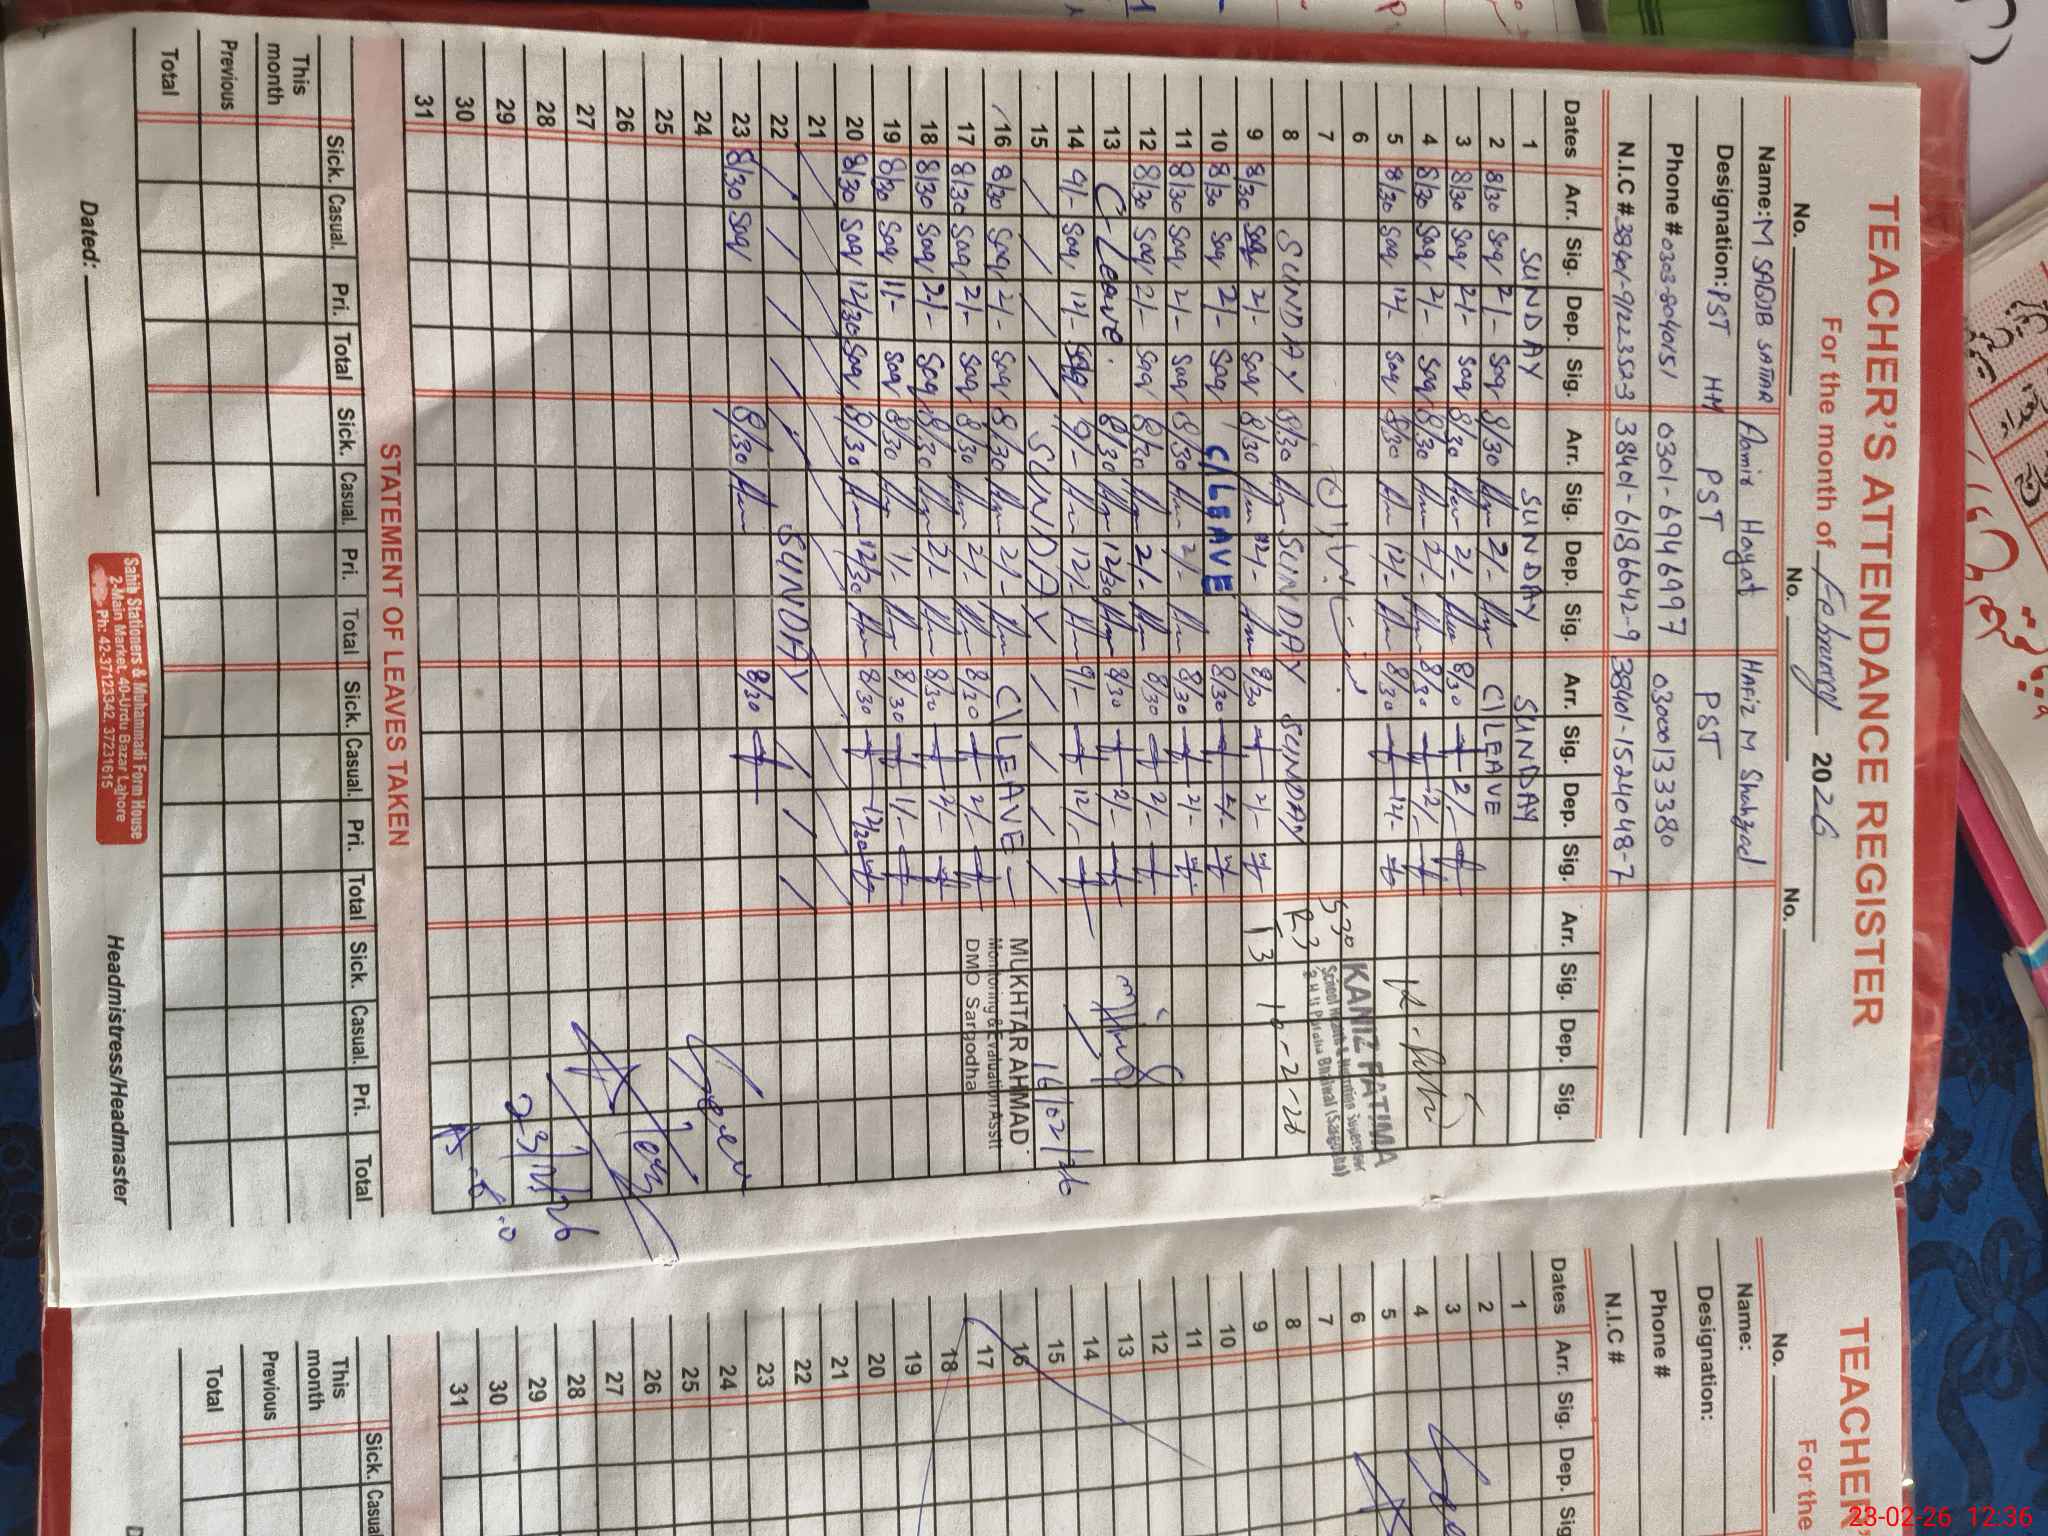 TEACHER'S ATTENDANCE REGISTER
For the month of February 2026
No. No. No.
Name: M SAQIB SATTAR Aamir Hayat Hafiz M Shahzad
Designation: PST HM PST PST
Phone # 0303-8040151 0301-6946997 03000133380
N.I.C # 38401-9122350-3 38401-6186642-9 38401-1524048-7
Dates Arr. Sig. Dep. Sig. Arr. Sig. Dep. Sig. Arr. Sig. Dep. Sig. Arr. Sig. Dep. Sig.
1 SUNDAY SUNDAY SUNDAY
2 8/30 Saq 2/- Saq 8/30 2/- C/LEAVE
3 8/30 Saq 2/- Saq 8/30 2/- 8/30 2/-
4 8/30 Saq 2/- Saq 8/30 2/- 8/30 2/-
5 8/30 Saq 12/- Saq 8/30 12/- 8/30 12/-
6
7
KANIZ FATIMA
School Health & Nutrition Supervisor
8 SUNDAY 8/30 SUNDAY SUNDAY
9 8/30 Saq 2/- Saq 8/30 12/- 8/30 2/-
10-2-26
10 8/30 Saq 2/- Saq C/LEAVE 8/30 2/-
11 8/30 Saq 2/- Saq 8/30 2/- 8/30 2/-
12 8/30 Saq 2/- Saq 8/30 2/- 8/30 2/-
13 C-Leave. 8/30 12/30 8/30 2/-
14 9/- Saq 12/- Saq 9/- 12/- 9/- 12/-
15 SUNDAY
16/02/26
16 8/30 Saq 2/- Saq 8/30 2/- C/LEAVE
MUKHTAR AHMAD
Monitoring & Evaluation Asstt
DMO Sargodha
17 8/30 Saq 2/- Saq 8/30 2/- 8/30 2/-
18 8/30 Saq 2/- Saq 8/30 2/- 8/30 2/-
19 8/30 Saq 1/- Saq 8/30 1/- 8/30 1/-
20 8/30 Saq 12/30 Saq 8/30 12/30 8/30 12/30
21
22 SUNDAY
23 8/30 Saq 8/30 8/30
24
25
26
27
28
23/2/26
29
30
31
STATEMENT OF LEAVES TAKEN
Sick. Casual. Pri. Total Sick. Casual. Pri. Total Sick. Casual. Pri. Total Sick. Casual. Pri. Total
This month
Previous
Total
Dated:
Sahib Stationers & Muhammadi Form House
2-Main Market, 40-Urdu Bazar Lahore
Ph: 42-37123342, 37231615
Headmistress/Headmaster
TEACHER'
For the
No.
Name:
Designation:
Phone #
N.I.C #
Dates Arr. Sig. Dep. Sig
1
2
3
4
5
6
7
8
9
10
11
12
13
14
15
16
17
18
19
20
21
22
23
24
25
26
27
28
29
30
31
Sick. Casual
This month
Previous
Total
D
23-02-26 12:36